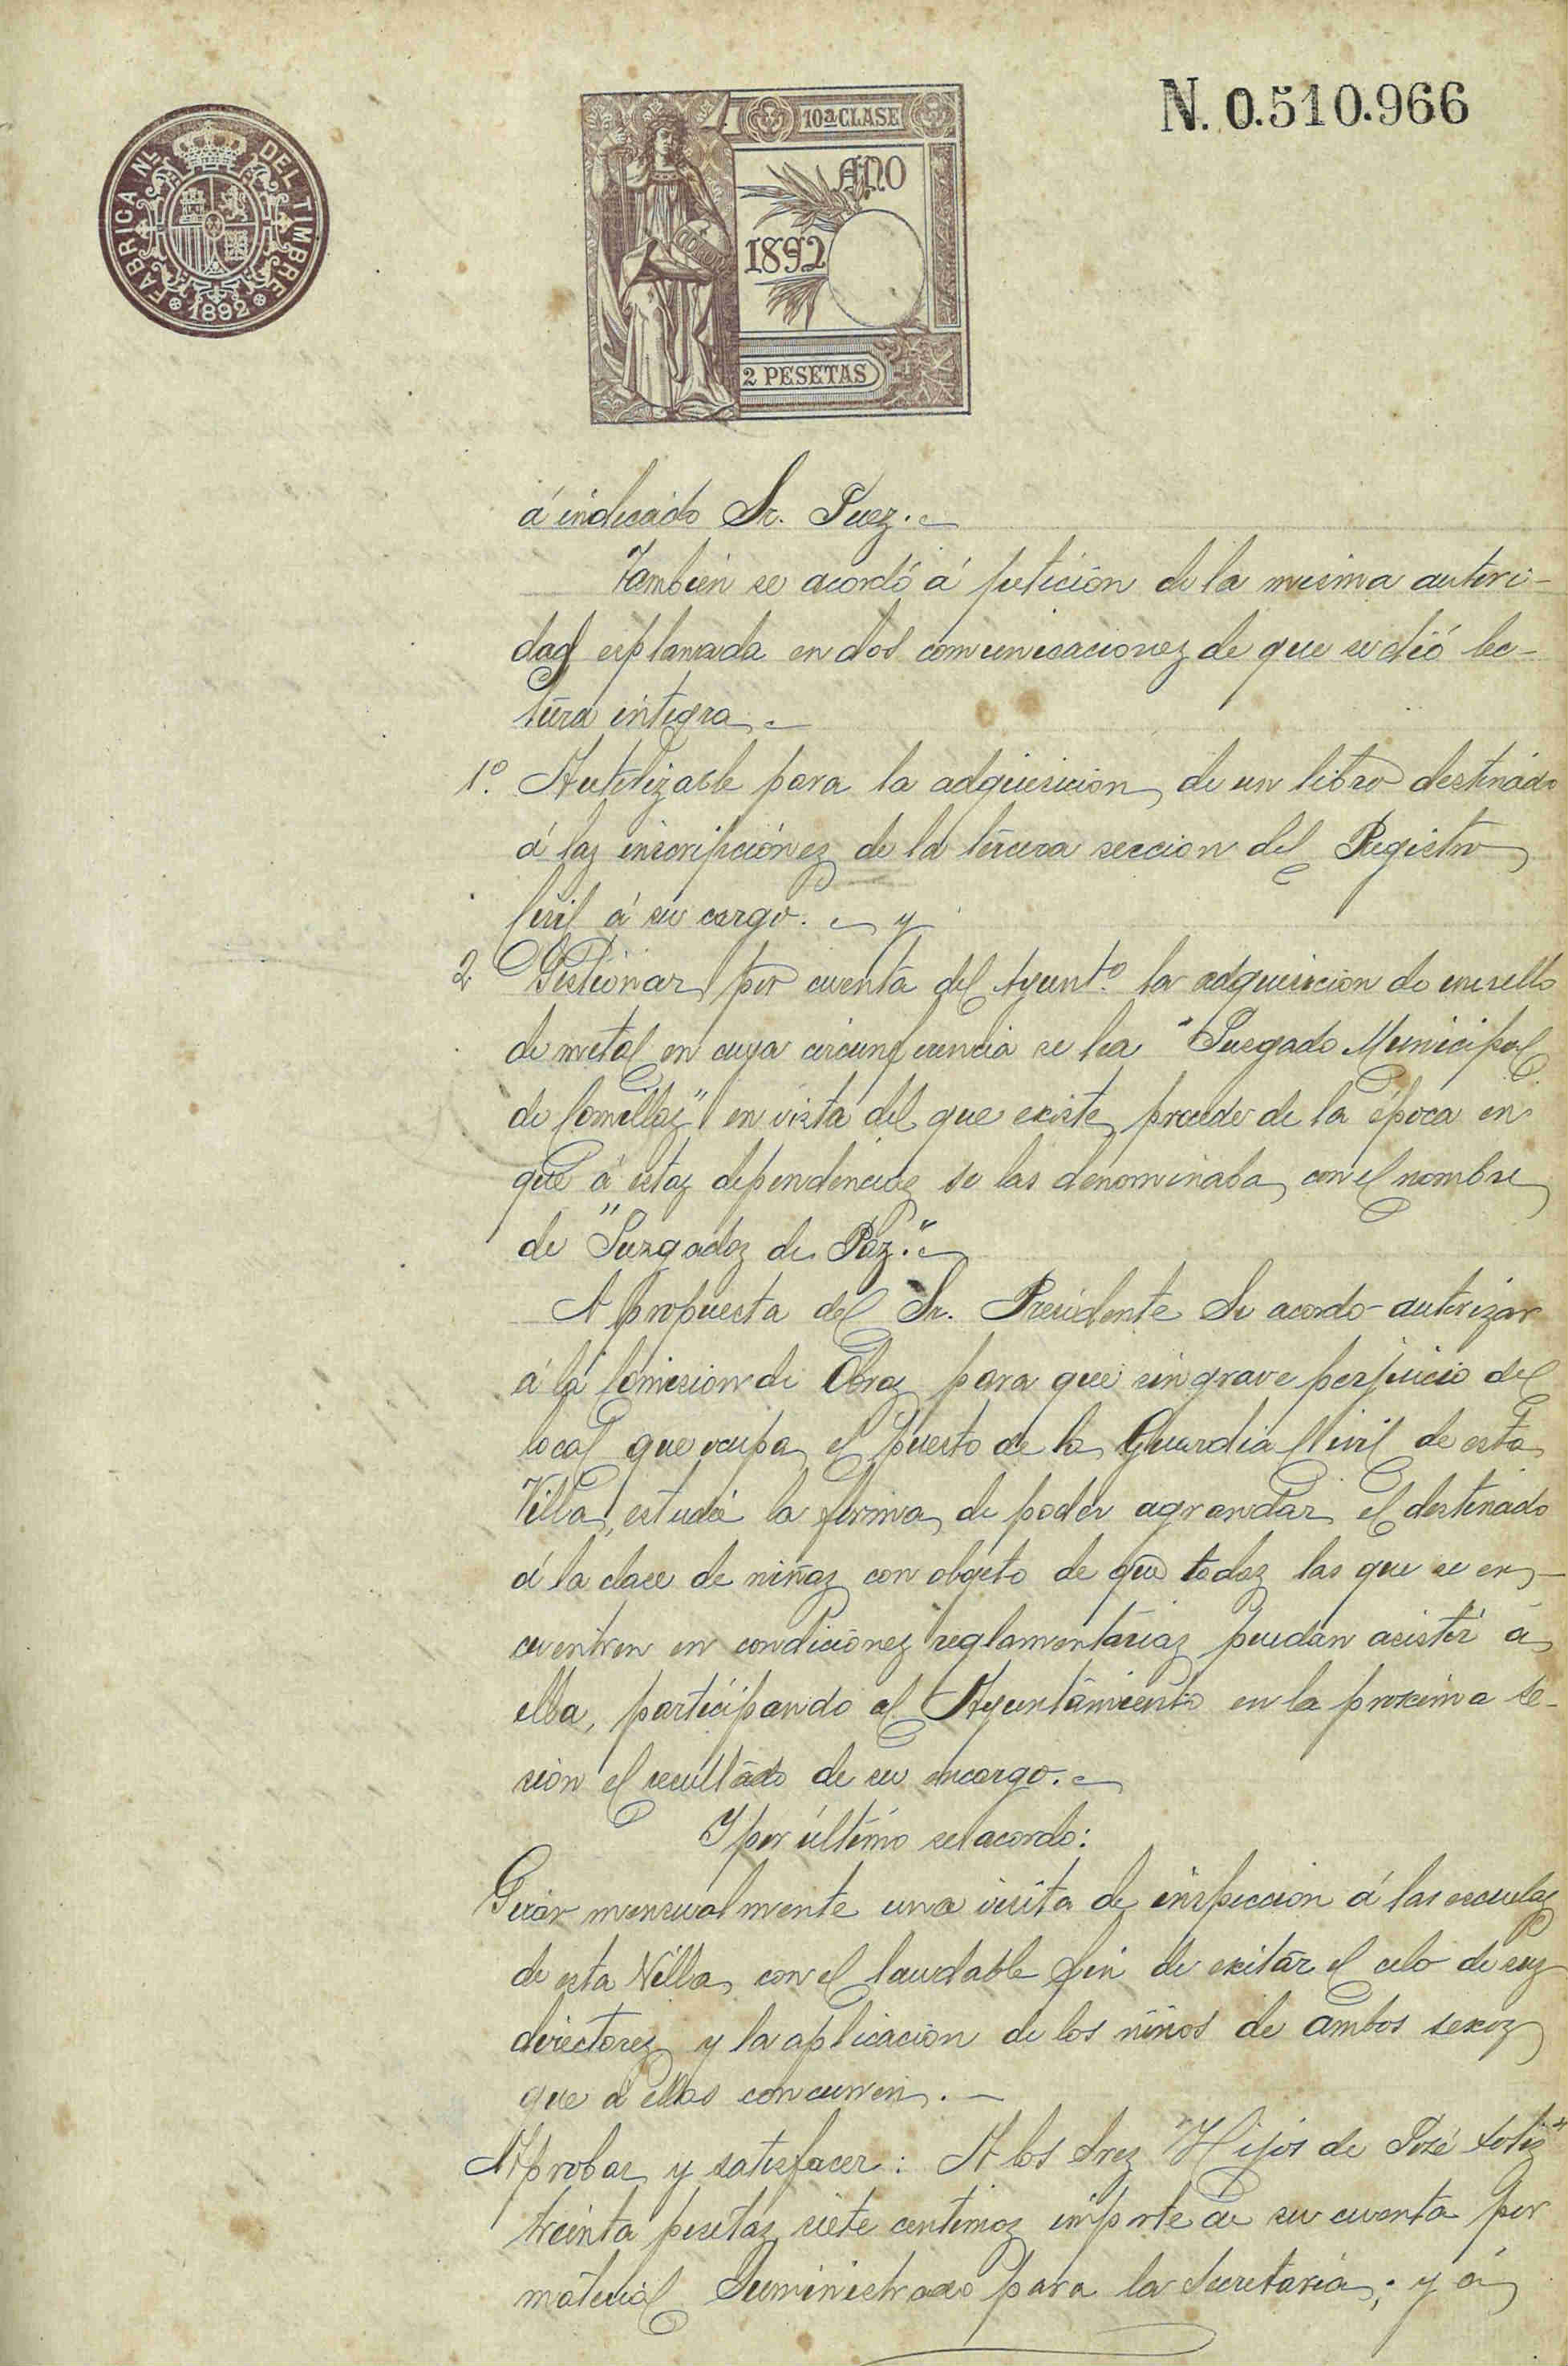 N. 0.510.966
FABRICA NL. DEL TIMBRE
1892
10ª CLASE
AÑO
1892
2 PESETAS
á indicado Sr. Juez.
Tambien se acordó á peticion de la misma autori-
dad esplanada en dos comunicaciones de que se dió lec-
tura integra.
1º. Autorizable para la adquisicion de un libro destinado
á las inscripciones de la tercera seccion del Registro
Civil á su cargo. y
2 Gestionar por cuenta del Ayuntº. la adquisicion de un sello
de metal en cuya circunferencia se lea "Juzgado Municipal
de Comillas" en vista del que existe procede de la época en
que á estas dependencias se las denominaba con el nombre
de "Juzgados de Paz."
A propuesta del Sr. Presidente Se acordo autorizar
á la Comision de Obras para que sin grave perjuicio del
local que ocupa el puesto de la Guardia Civil de esta
Villa, estudie la forma de poder agrandar el destinado
á la clase de niñas con objeto de que todas las que se en-
cuentren en condiciones reglamentarias puedan asistir á
ella, participando al Ayuntamiento en la proxima se-
sion el resultado de su encargo.
Y por último se acordo:
Girar mensualmente una visita de inspeccion á las escuelas
de esta Villa, con el laudable fin de exitar el celo de sus
directores y la aplicacion de los niños de ambos sexos
que á ellas concurren.
Aprobar y satisfacer: A los Sres "Hijos de José
treinta pesetas siete centimos importe de su cuenta por
material Suministrado para la Secretaria; y á